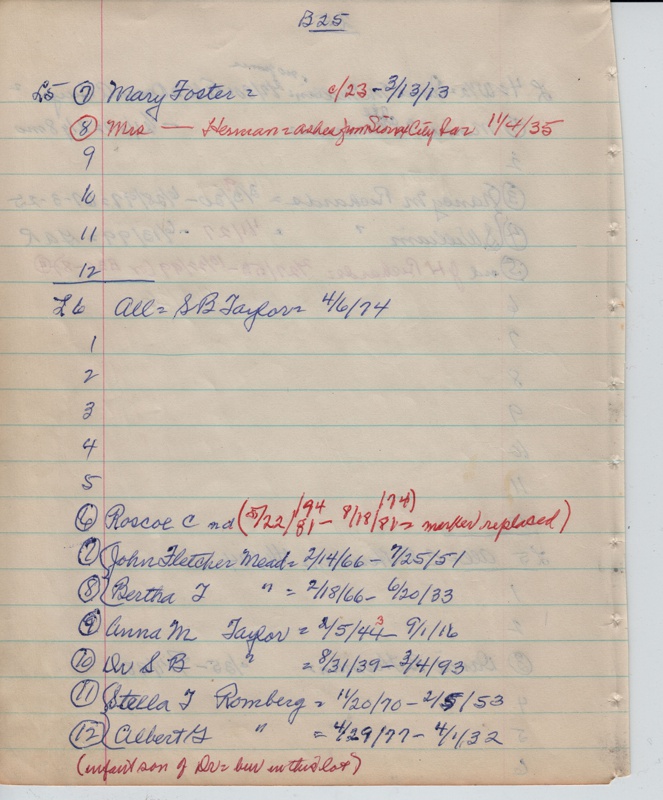 B25
L5 ⑦ Mary Foster = c/23 - 3/13/13
⑧ Mrs — Herman = ashes from Sioux City Ia 11/4/35
9
10
11
12
L6 All = S B Taylor = 4/6/74
1
2
3
4
5
⑥ Roscoe C nd (5/22/81 /94 - 8/18/81 /74) = marker replased)
⑦ John Fletcher Mead = 2/14/66 - 7/25/51
⑧ Bertha T " = 2/18/66 - 6/20/33
⑨ Anna M Taylor = 2/5/44 3 - 9/1/16
⑩ Dr S B " = 8/31/39 - 3/4/93
⑪ Stella T Romberg = 11/20/70 - 2/5/53
⑫ Albert G " = 4/29/77 - 4/1/32
(infant son of Dr = bur in this lot)